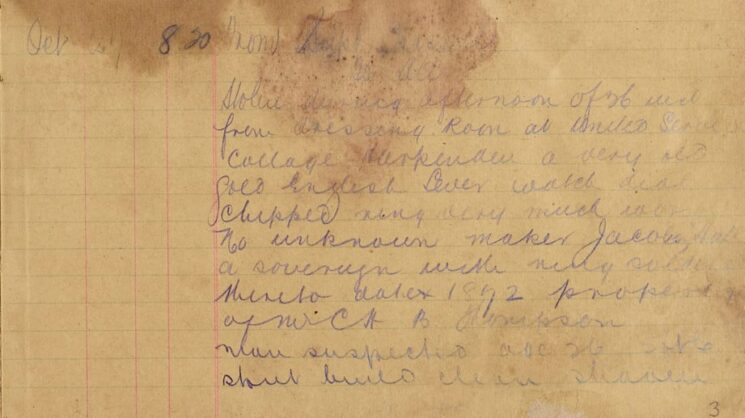 Oct 8 20 From
To All
Stolen during afternoon of 26 inst
from dressing Room at United Service
College Harpenden a very old
gold English Lever watch dial
chipped ring very much worn
No unknown maker Jacobs
a sovereign with ring
thereto date 1872 property
of Mr C H B Thompson
man suspected age 26
build clean shaven
3